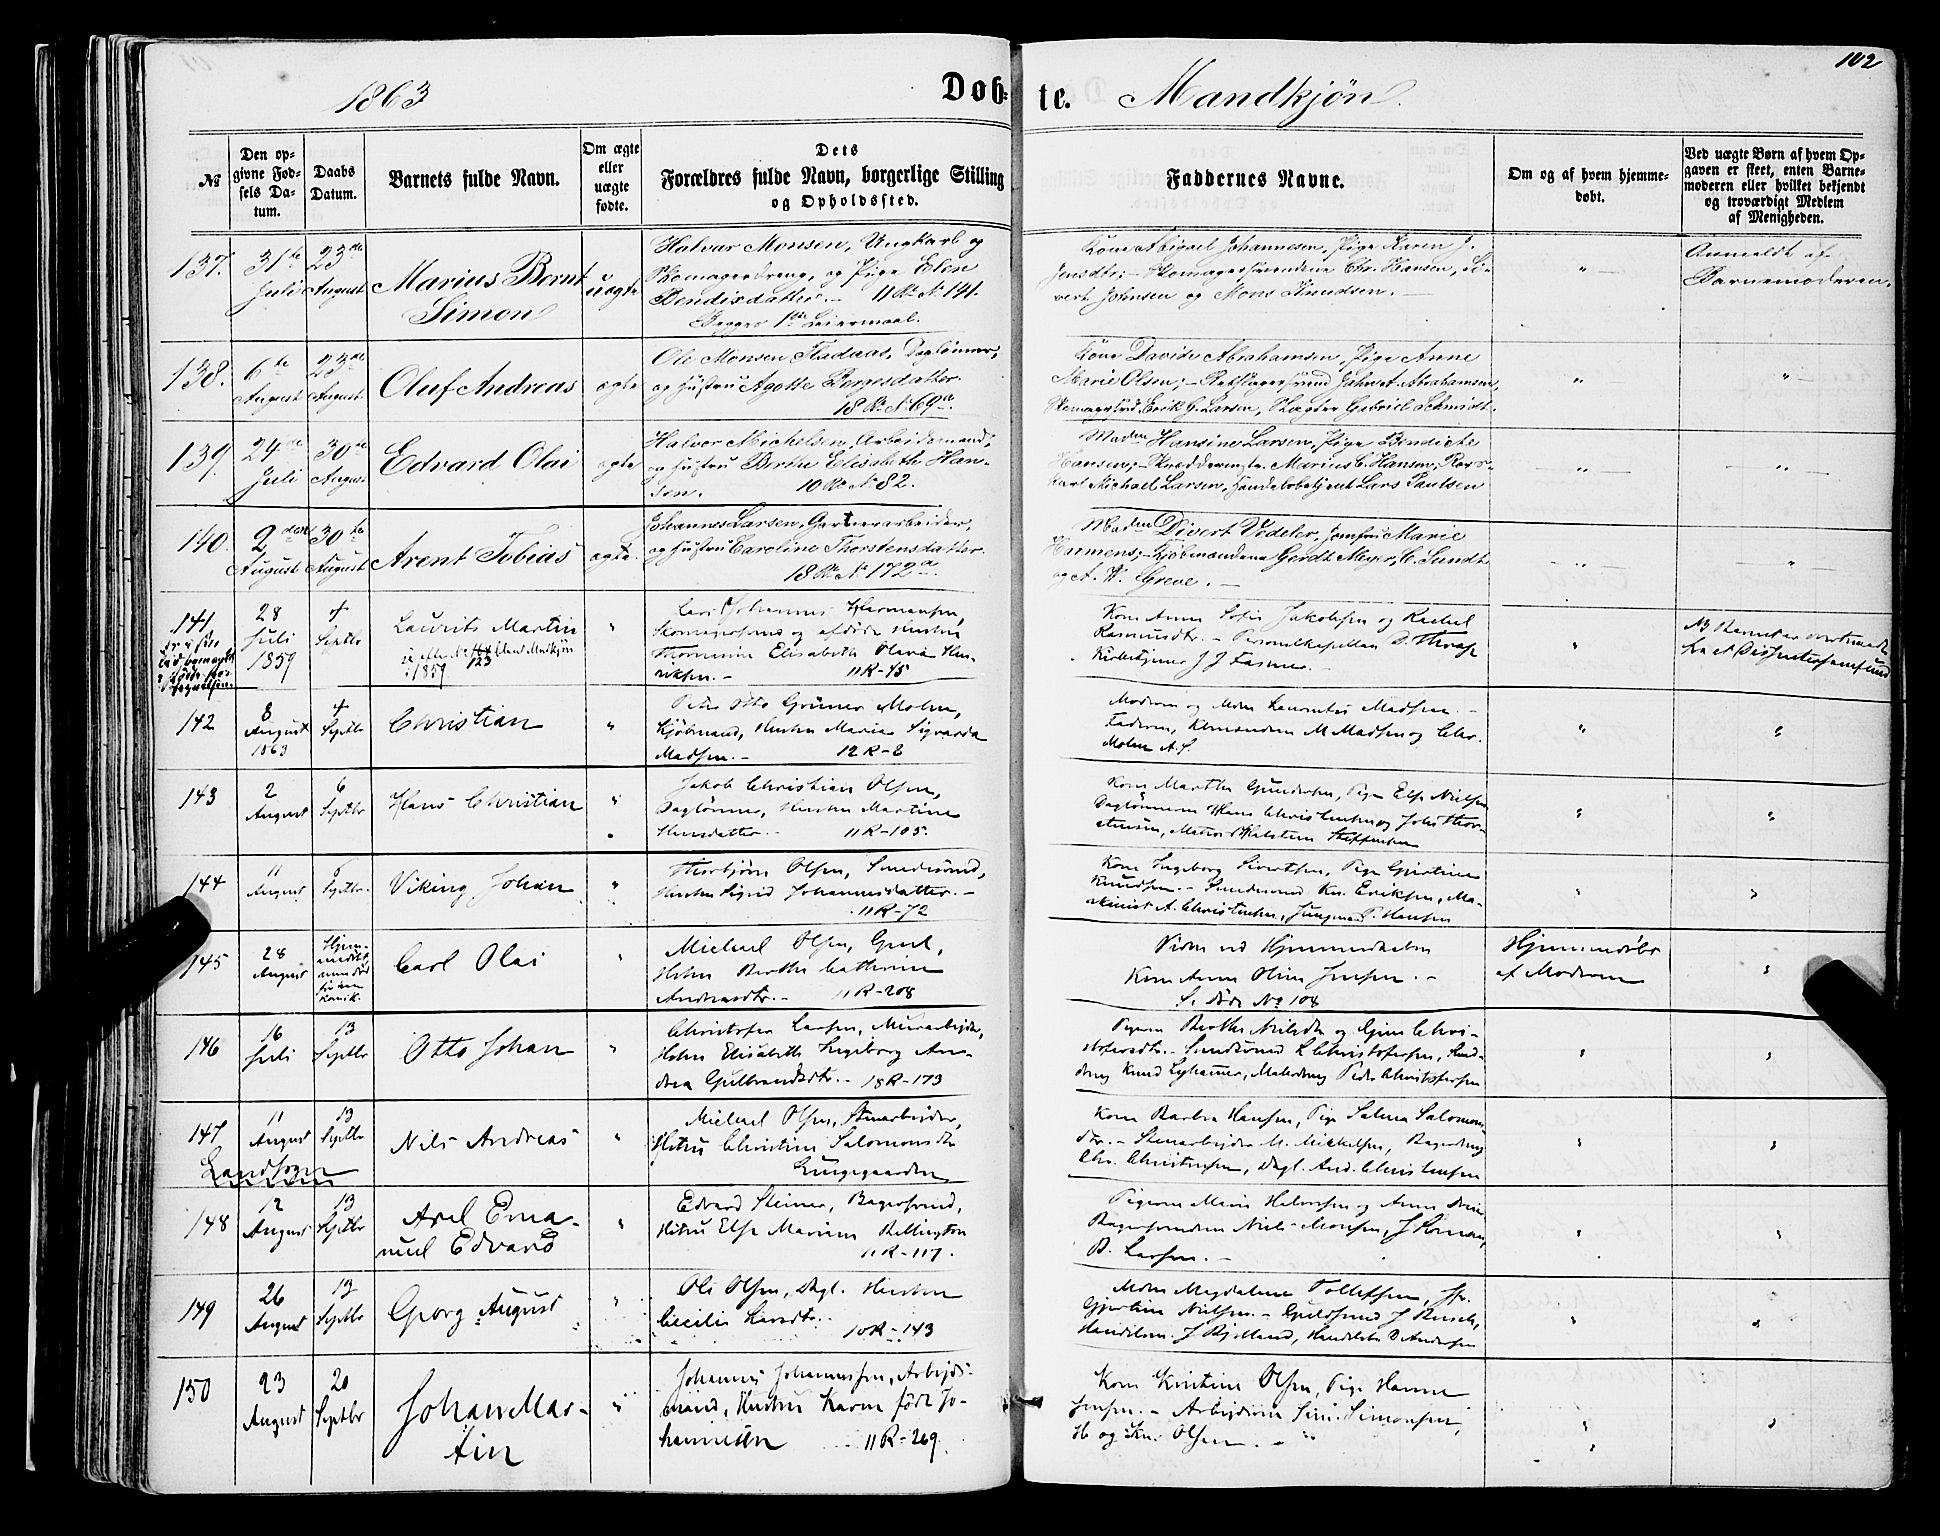 102
1863
Døb-
te. Mandkjøn.
№
Den op-
givne Fød-
sels Da-
tum.
Daabs
Datum.
Barnets fulde Navn.
Om ægte
eller
uægte
fødte.
Dets
Forældres fulde Navn, borgerlige Stilling
og Opholdssted.
Faddernes Navne.
Om og af hvem hjemme-
døbt.
Ved uægte Børn af hvem Op-
gaven er skeet, enten Barne-
moderen eller hvilket bekjendt
og troværdigt Medlem
af Menigheden.
137.
31te
Juli
23de
August
Marius Bernt
Simon
uægte
Halvar Monsen, Ungkarl og
Skomagerdreng, og Pige Elen
Bendixdatter. — 11 R. N. 141.
Begges 1ste Leiermaal.
Kone Abigael Johannesen, Pige Karen J.
Jensdtr; — Skomagersvendene Chr. Hansen, Si-
vert Johnsen og Mons Knudsen. —
Anmeldt af
Barnemoderen.
138.
6te
August
23de
August
Oluf Andreas
ægte
Ole Monsen Fladaas, Daglønner,
og Hustru Agotte Bergesdatter.
18 R. N. 69a.
Kone Davide Abrahamsen, Pige Anne
Marie Olsen; — Rebslagersvend John A. Abrahamsen,
Skomagersvd. Erik G. Larsen, Slagter Gabriel Schmidt.
139.
24de
Juli
30te
August
Edvard Olai
ægte
Halvor Michelsen, Arbeidsmand,
og Hustru Berthe Elisabeth Han-
sen. 10 R. N. 82.
Madm Hansine Larsen, Pige Bendicte
Hansen; — Skræddermstr. Marius C. Hansen, Rors-
karl Michael Larsen, Handelsbetjent Lars Paulsen
140.
2den
August
30te
August
Arent Tobias
ægte.
Johannes Larsen, Gartnerarbeider,
og Hustru Caroline Thorstensdatter.
18 R. N. 172a.
Madm Divert Vedeler, Jomfru Marie
Harmens; — Kjøbmændene Gerdt Meyer, C. Sundt
og A. W. Greve. —
141
28
Juli
1859
4
Septbr
Laurits Martin
1859
Lars Johannes Hermansen,
Skomagersvend og afdøde Hustru
Thomine Elisabeth Olava Hen-
riksen. — 11R-45
Kone Anna Sofie Jakobsen og Rachel
Rasmusdtr. — Personelkapellan D. Thrap
Kirketjener J J Fasmer. —
NB Barnet er overtraadt
fra et Dissentersamfund
142
8
August
1863
4
Septbr
Christian
Peter Otto Grüner Mohn,
Kjøbmand, Hustru Maria Sigvarda
Madsen. — 12 R-8
Moderen og Mdm Laurentze Madsen. —
Faderen, Kbmændene M Madsen og Chr.
Mohn A.S.
143
2
August
6
Septbr
Hans Christian
Jakob Christian Olsen,
Daglønner, Hustru Martine
Hansdatter. — 11R-105.
Kone Martha Gundersen, Pige Else Nielsen,
Daglønnerne Hans Christensen og Johs Thor-
stensen, Matros Halstein Steffensen
144
11
August
6
Septbr.
Viking Johan
Thorbjørn Olsen, Smedesvend,
Hustru Sigrid Johannesdatter. —
11R-72
Kone Ingeborg Sivertsen, Pige Gjertine
Knudsen. — Smedesvend Kn. Eriksen, Ma-
skinist A. Christensen, Jungmand P. Hansen
145
28
August
Carl Olai
Michael Olsen, Gsel,
Hustru Berthe Cathrine
Andreasdtr. — 11R-208
Vidne ved Hjemmedaaben
Kone Anne Oline Jensen. —
S. døde No 108
Hjemmedøbt
af Moderen
146
16
Juli
13
Septbr
Otto Johan
Christofer Larsen, Murarbejder,
Hustru Elisabeth Ingeborg An-
drea Gulbrandsdtr. — 18R-173
Pigerne Berthe Nielsdtr og Gjine Chri-
stofersdtr. — Smedsvend L Christofersen, Smed-
dreng Knud Lyhammer, Malerdreng Peder Christofersen
147
11
August
13
Septbr
Nils Andreas
Landsogn
Michael Olsen, Stenarbejder,
Hstru Christine Salomonsdtr
Lungegaarden
Kone Barbra Hansen, Pige Salmea Salomons-
dtr. — Stenarbejder M. Mikkelsen, Bagerdreng
Chr. Christensen, Dagl. And. Christensen
148
12
August
13
Septbr
Axel Ema-
nuel Edvard
Edvard Steiner, Bagersvend,
Hstru Else Marine Bellington
11R-117.
Pigerne Marie Halvorsen og Anna Steine
Bagersvendene Niels Monsen, J Roman,
B. Larsen. —
149
26
August
13
Septbr
Georg August
Ole Olsen, Dagl. Hustru
Cecilie Larsdtr.
10R-143
Mdm Magdalene Tollefsen, Jfr.
Gjertine Nielsen. — Guldsvend J Busch,
Handelsm. J Kjelland, Handelsbt. D Andersen
150
23
August
20
Septbr
Johan Mar-
tin
Johannes Johannessen, Arbejds-
mand, Hustru Karen født Jo-
hannesen 11R-269
Kone Kristine Olsen, Pige Hanna
Jensen. — Arbejderne Sim. Simonsen,
H og Kn. Olsen. —